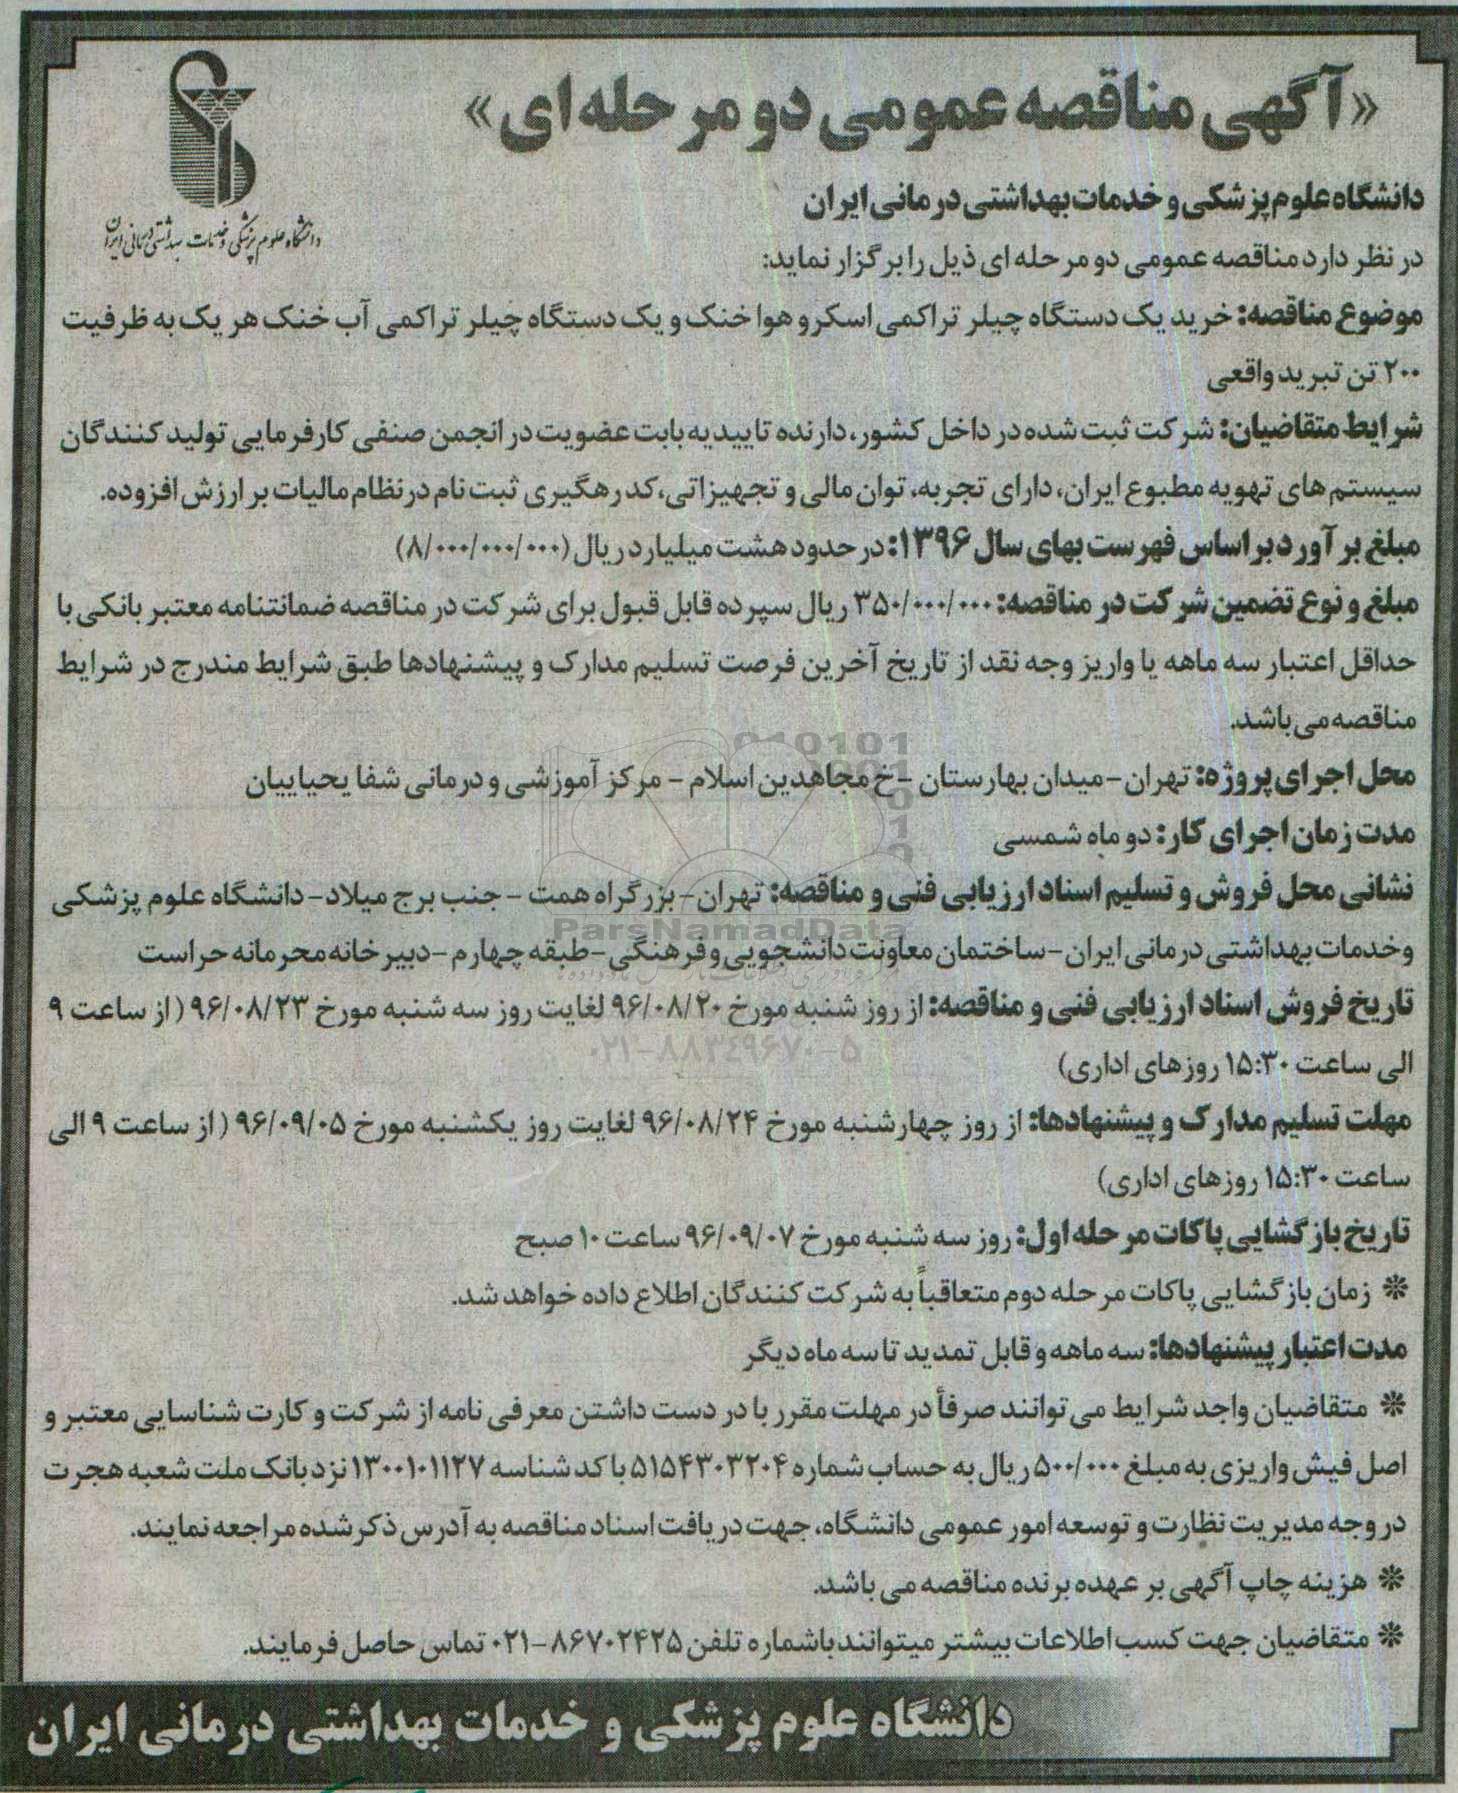 «آگهی مناقصه عمومی دو مرحله ای»
دانشگاه علوم پزشکی و خدمات بهداشتی درمانی ایران
دانشگاه علوم پزشکی و خدمات بهداشتی درمانی ایران
در نظر دارد مناقصه عمومی دو مرحله ای ذیل را برگزار نماید:
موضوع مناقصه: خرید یک دستگاه چیلر تراکمی اسکرو هوا خنک و یک دستگاه چیلر تراکمی آب خنک هر یک به ظرفیت
۲۰۰ تن تبرید واقعی
شرایط متقاضیان: شرکت ثبت شده در داخل کشور، دارنده تاییدیه بابت عضویت در انجمن صنفی کارفرمایی تولید کنندگان
سیستم های تهویه مطبوع ایران، دارای تجربه، توان مالی و تجهیزاتی، کد رهگیری ثبت نام در نظام مالیات بر ارزش افزوده.
مبلغ برآورد بر اساس فهرست بهای سال ۱۳۹۶: در حدود هشت میلیارد ریال (۸/۰۰۰/۰۰۰/۰۰۰)
مبلغ و نوع تضمین شرکت در مناقصه: ۳۵۰/۰۰۰/۰۰۰ ریال سپرده قابل قبول برای شرکت در مناقصه ضمانتنامه معتبر بانکی با
حداقل اعتبار سه ماهه یا واریز وجه نقد از تاریخ آخرین فرصت تسلیم مدارک و پیشنهادها طبق شرایط مندرج در شرایط
مناقصه می باشد.
محل اجرای پروژه: تهران - میدان بهارستان - خ مجاهدین اسلام - مرکز آموزشی و درمانی شفا یحیاییان
مدت زمان اجرای کار: دو ماه شمسی
نشانی محل فروش و تسلیم اسناد ارزیابی فنی و مناقصه: تهران - بزرگراه همت - جنب برج میلاد - دانشگاه علوم پزشکی
ParsNamadData
و خدمات بهداشتی درمانی ایران - ساختمان معاونت دانشجویی و فرهنگی - طبقه چهارم - دبیرخانه محرمانه حراست
تاریخ فروش اسناد ارزیابی فنی و مناقصه: از روز شنبه مورخ ۹۶/۰۸/۲۰ لغایت روز سه شنبه مورخ ۹۶/۰۸/۲۳ (از ساعت ۹
۰۲۱-۸۸۳۴۹۶۷۰-۵
الی ساعت ۱۵:۳۰ روزهای اداری)
مهلت تسلیم مدارک و پیشنهادها: از روز چهارشنبه مورخ ۹۶/۰۸/۲۴ لغایت روز یکشنبه مورخ ۹۶/۰۹/۰۵ (از ساعت ۹ الی
ساعت ۱۵:۳۰ روزهای اداری)
تاریخ بازگشایی پاکات مرحله اول: روز سه شنبه مورخ ۹۶/۰۹/۰۷ ساعت ۱۰ صبح
❊ زمان بازگشایی پاکات مرحله دوم متعاقباً به شرکت کنندگان اطلاع داده خواهد شد.
مدت اعتبار پیشنهادها: سه ماهه و قابل تمدید تا سه ماه دیگر
❊ متقاضیان واجد شرایط می توانند صرفاً در مهلت مقرر با در دست داشتن معرفی نامه از شرکت و کارت شناسایی معتبر و
اصل فیش واریزی به مبلغ ۵۰۰/۰۰۰ ریال به حساب شماره ۵۱۵۴۳۰۳۲۰۴ با کد شناسه ۱۳۰۰۱۰۱۱۲۷ نزد بانک ملت شعبه هجرت
در وجه مدیریت نظارت و توسعه امور عمومی دانشگاه، جهت دریافت اسناد مناقصه به آدرس ذکر شده مراجعه نمایند.
❊ هزینه چاپ آگهی بر عهده برنده مناقصه می باشد.
❊ متقاضیان جهت کسب اطلاعات بیشتر میتوانند با شماره تلفن ۸۶۷۰۲۴۲۵-۰۲۱ تماس حاصل فرمایند.
دانشگاه علوم پزشکی و خدمات بهداشتی درمانی ایران